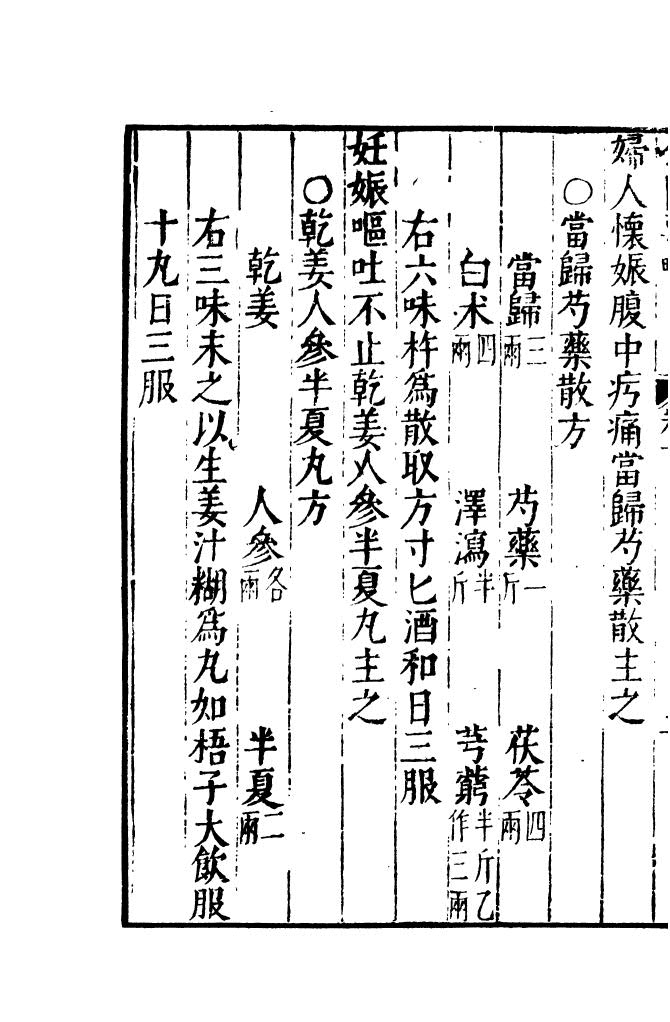 婦人懷娠腹中㽲痛當歸芍藥散主之
○當歸芍藥散方
當歸三兩 芍藥一斤 茯苓四兩
白术四兩 澤瀉半斤 芎藭半斤乙作三兩
右六味杵爲散取方寸匕酒和日三服
妊娠嘔吐不止乾姜人參半夏丸主之
○乾姜人參半夏丸方
乾姜 人參各一兩 半夏二兩
右三味末之以生姜汁糊爲丸如梧子大飲服
十丸日三服